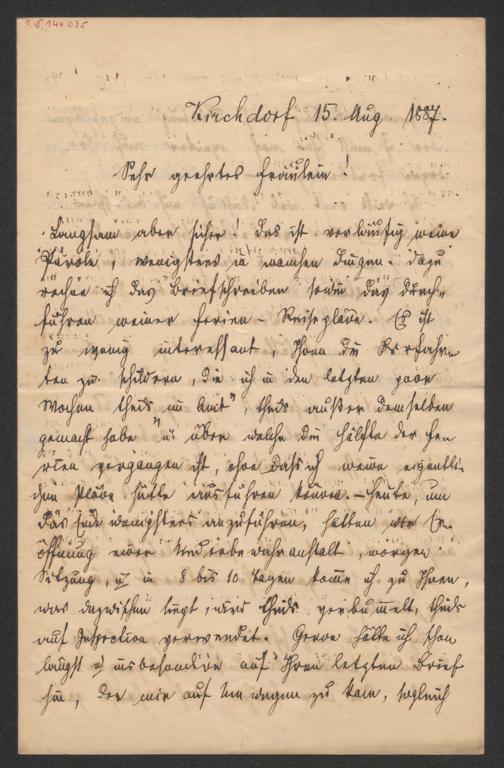 I.N. 144.035
Kirchdorf 15. Aug 1887.
Sehr geehrtes Fräulein!
Langsam aber sicher! Das ist vorläufig meine
Parole, wenigstens in manchen Dingen. Dazu
rechne ich das Briefschreiben sowie das Durch=
führen meiner Ferien-Reisepläne. Es ist
zu wenig interessant, Ihnen die Kreuzfahr
ten zu schildern, die ich in den letzten paar
Wochen theils im Amt", theils außer demselben
gemacht habe u. über welche die Hälfte der Fe
rien vergangen ist, ohne dass ich meine eigentli
chen Pläne hätte ausführen können. – Heute, um
das Ende wenigstens anzuführen, hatten wir Er=
öffnung einer Kinderbewahranstalt, morgen
Sitzung, u. in 8 bis 10 Tagen komme ich zu Ihnen,
was dazwischen liegt, wird theils verbummelt, theils
auf Inspection verwendet. Gerne hätte ich schon
längst u. insbesondere auf Ihren letzten Brief
hin, der mir auf Umwegen zu kam, sogleich